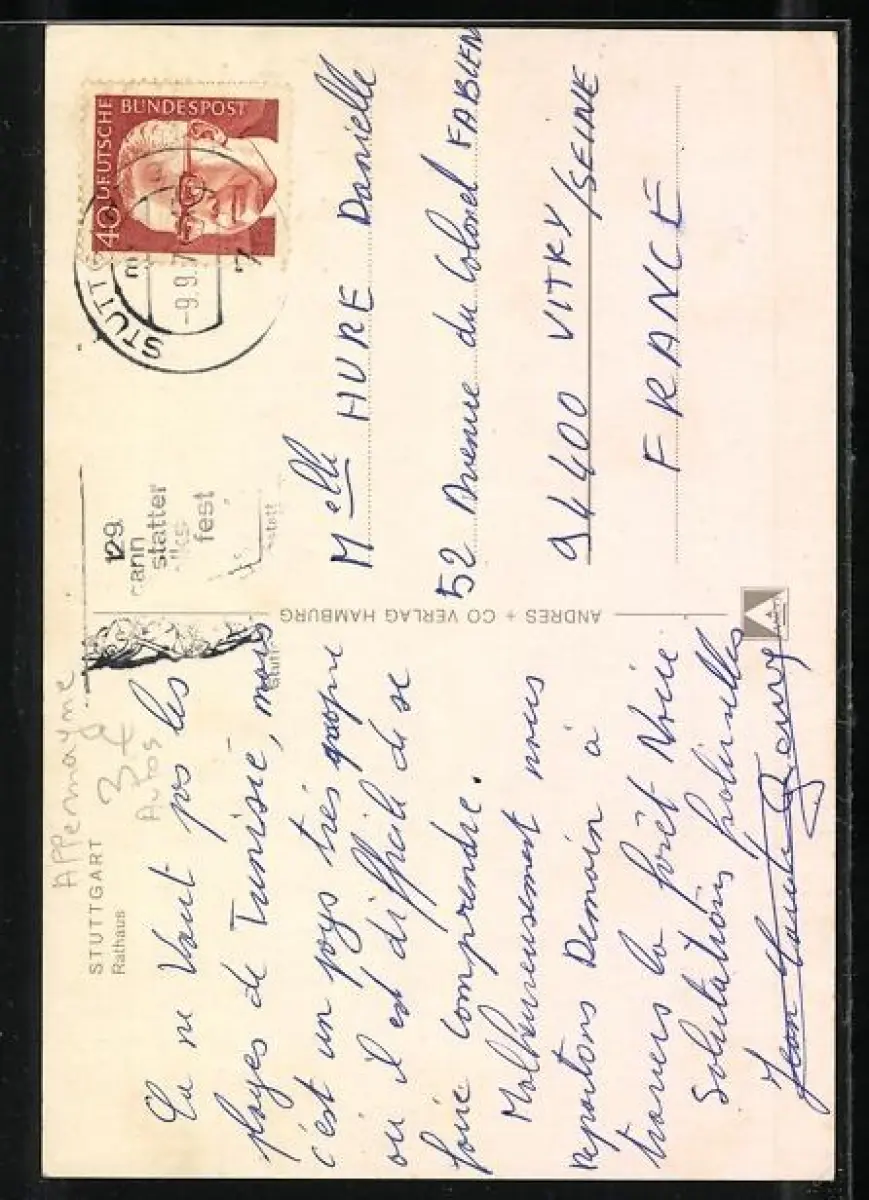 Allemagne
3€
Autos
STUTTGART
Rathaus
Ça ne Vaut pas les
plages de Tunisie, mais
c'est un pays très propre
où il est difficile de se
faire comprendre.
Malheureusement nous
repartons Demain à
travers la forêt Noire
Salutations
Jean
ANDRES + CO VERLAG HAMBURG
DEUTSCHE BUNDESPOST
40
STUTTG
-9.9.7
7
129.
cann
statter
fest
Melle HURE Danielle
52 Avenue du Colonel FABIEN
94400 VITRY/SEINE
FRANCE